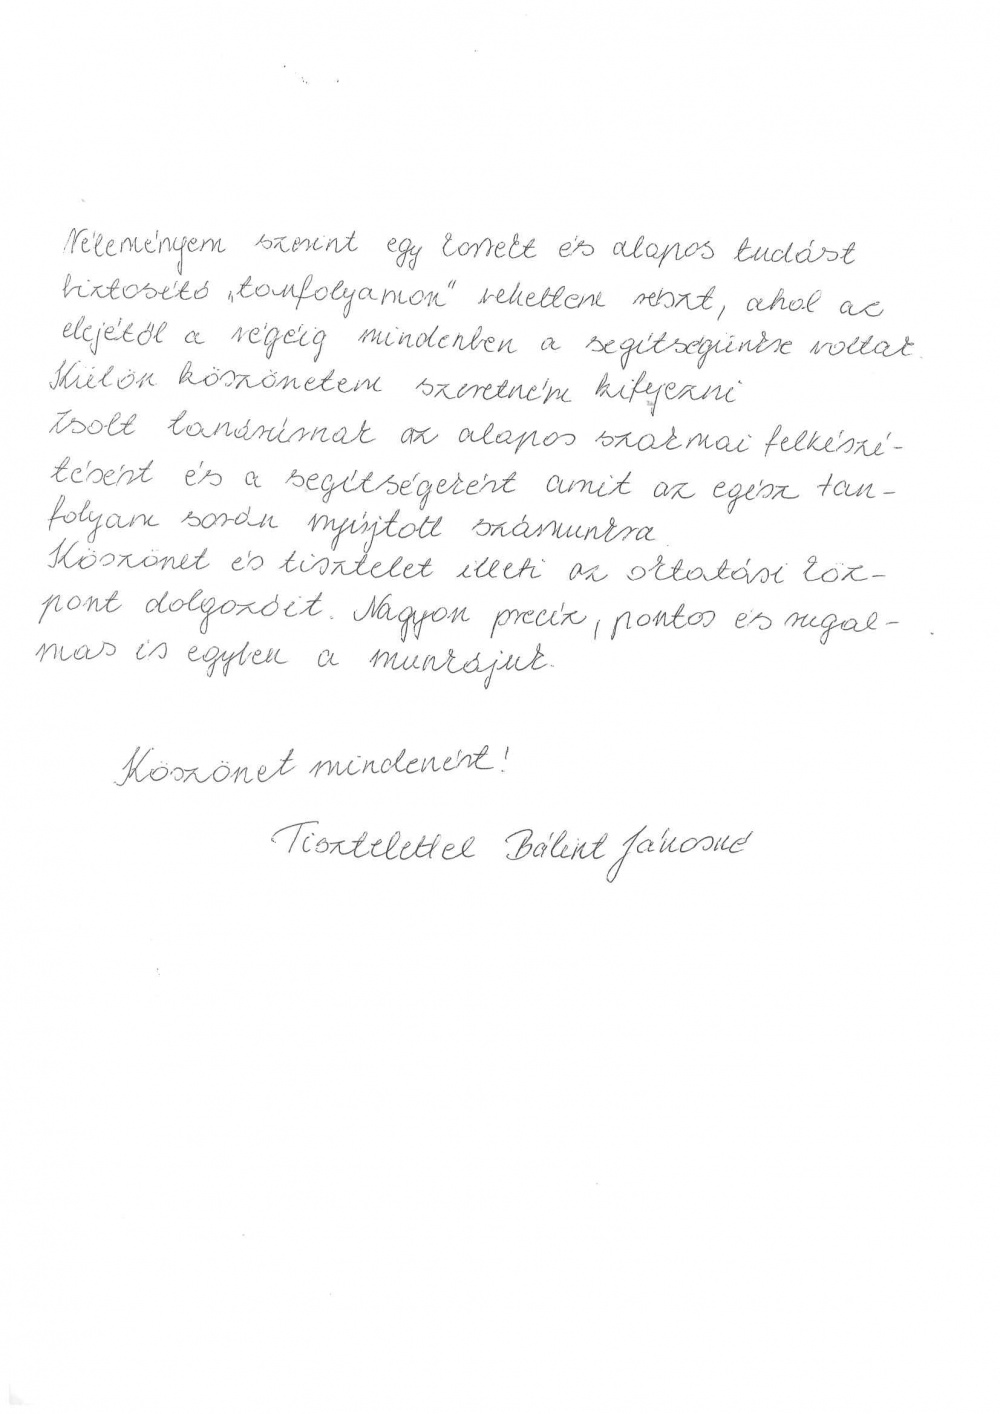 Véleményem szerint egy korrekt és alapos tudást
biztosító „tanfolyamon" vehettem részt, ahol az
elejétől a végéig mindenben a segítségünkre voltak.
Külön köszönetem szeretném kifejezni
Zsolt tanárúrnak az alapos szakmai felkészí-
tésért és a segítségéért amit az egész tan-
folyam során nyújtott számunkra.
Köszönet és tisztelet illeti az oktatási köz-
pont dolgozóit. Nagyon precíz, pontos és rugal-
mas is egyben a munkájuk.
Köszönet mindenért!
Tisztelettel Bálint Jánosné